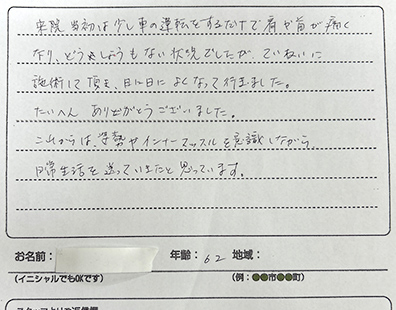 来院当初は少し車の運転をするだけで肩や首が痛く
なり、どうしようもない状況でしたが、ていねいに
施術して頂き、日に日によくなって行きました。
たいへんありがとうございました。
これからは、姿勢やインナーマッスルを意識しながら
日常生活を送っていきたと思っています。
お名前: 年齢: 62 地域:
(イニシャルでもOKです) (例:●●市●●町)